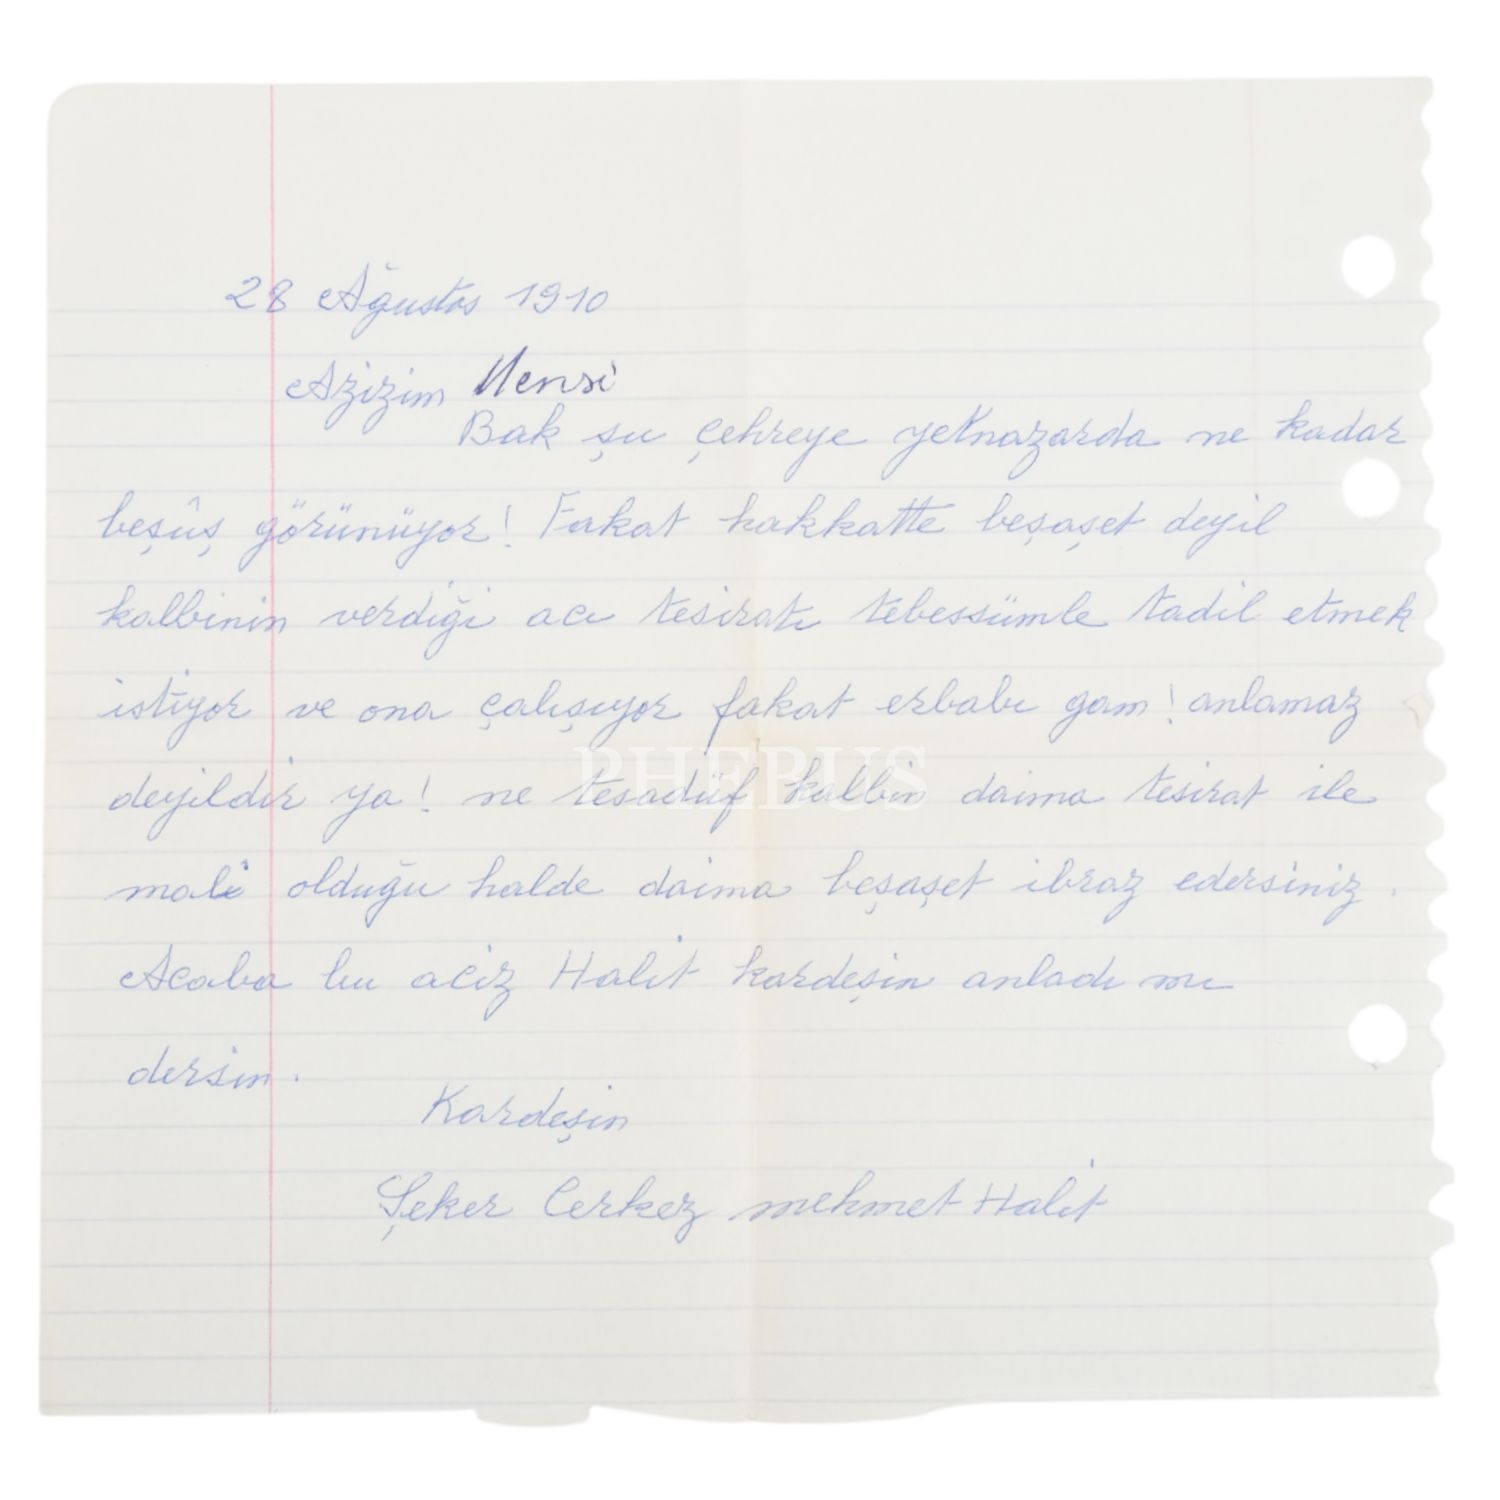 28 Ağustos 1910
Azizim Mensi
Bak şu çehreye yeknazarda ne kadar
beşûş görünüyor! Fakat hakkatte beşaşet deyil
kalbinin verdiği acı tesiratı tebessümle tadil etmek
istiyor ve ona çalışıyor fakat erbabı gam! anlamaz
deyildir ya! ne tesadüf kalbin daima tesirat ile
mali olduğu halde daima beşaşet ibraz edersiniz.
Acaba bu aciz Halit kardeşin anladı mı
dersin.
Kardeşin
Şeker Cerkez mehmet Halit
PHEBUS